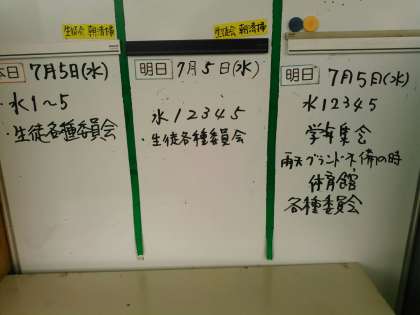 生徒会 朝清掃
本日 7月5日(水)
・水1〜5
・生徒各種委員会
生徒会 朝清掃
明日 7月5日(水)
水12345
・生徒各種委員会
明日 7月5日(水)
水12345
学年集会
雨天グランド不備の時
体育館
各種委員会